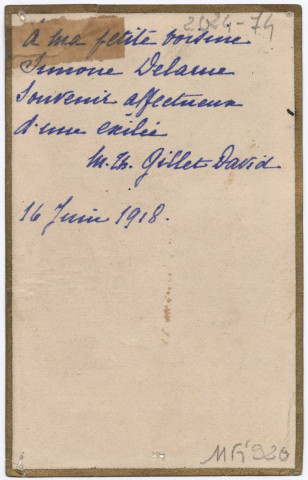 2024-74
A ma petite voisine
Simone Delarue
Souvenir affectueux
d'une exilée
M. Th. Gillet-David
16 Juin 1918.